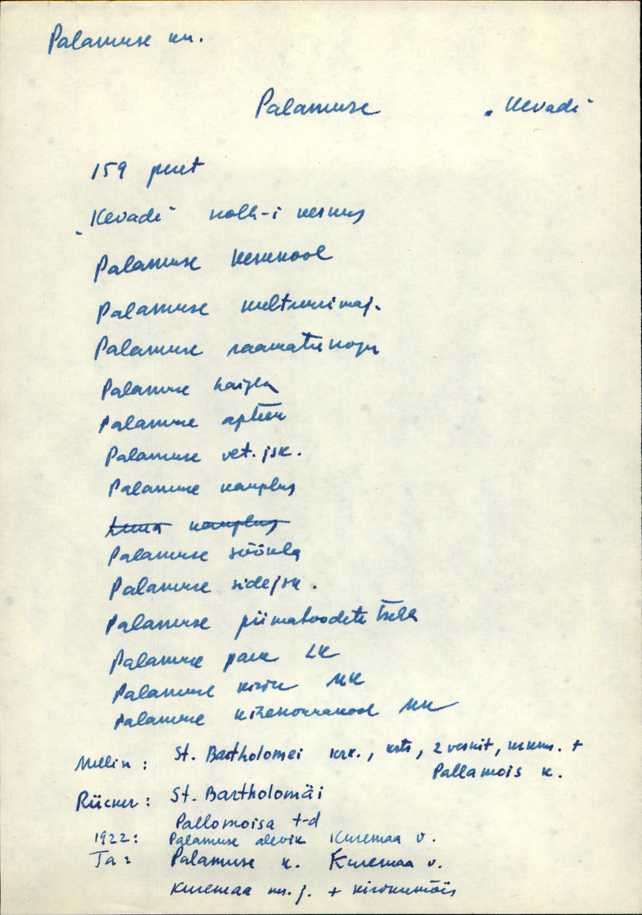 Palamuse kn.
Palamuse „Kevade"
159 peret
„Kevade" kolh-i keskus
Palamuse keskkool
Palamuse kultuurimaj.
Palamuse raamatukogu
Palamuse haigla
Palamuse apteek
Palamuse vet. jsk.
Palamuse kauplus
kauplus
Palamuse söökla
Palamuse sidejsk.
Palamuse piimatoodete tsehh
Palamuse park LK
Palamuse kirik MK
Palamuse kihelkonnakool MK
Mellin: St. Bartholomei krk., krts, 2 veskit, +
Pallamois k.
Rücker: St. Bartholomäi
Pallomoisa t-d
1922: Palamuse alevik Kuremaa v.
Ta: Palamuse k. Kuremaa v.
Kuremaa kn. j. + kirikumõis